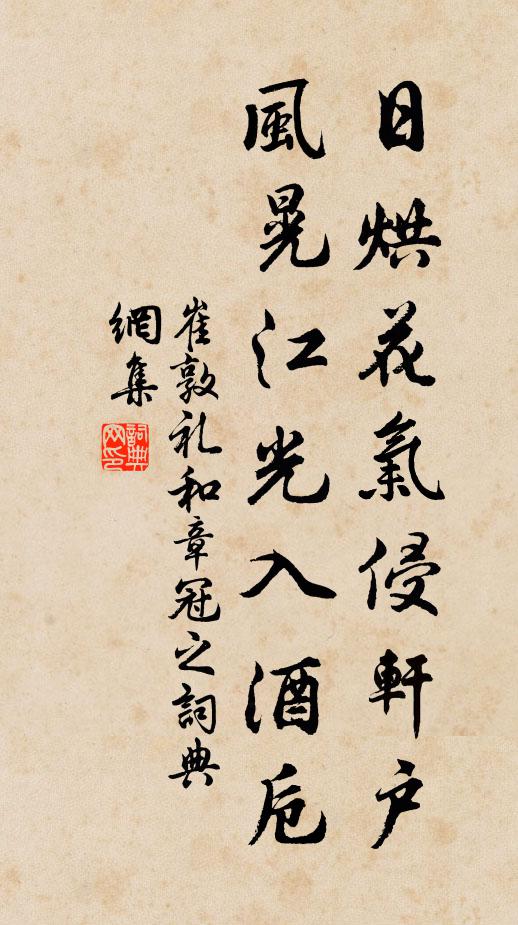 日烘花氣侵軒户
風晃江光入酒卮
崔敦礼和章冠之詞典
網集
詞典網印